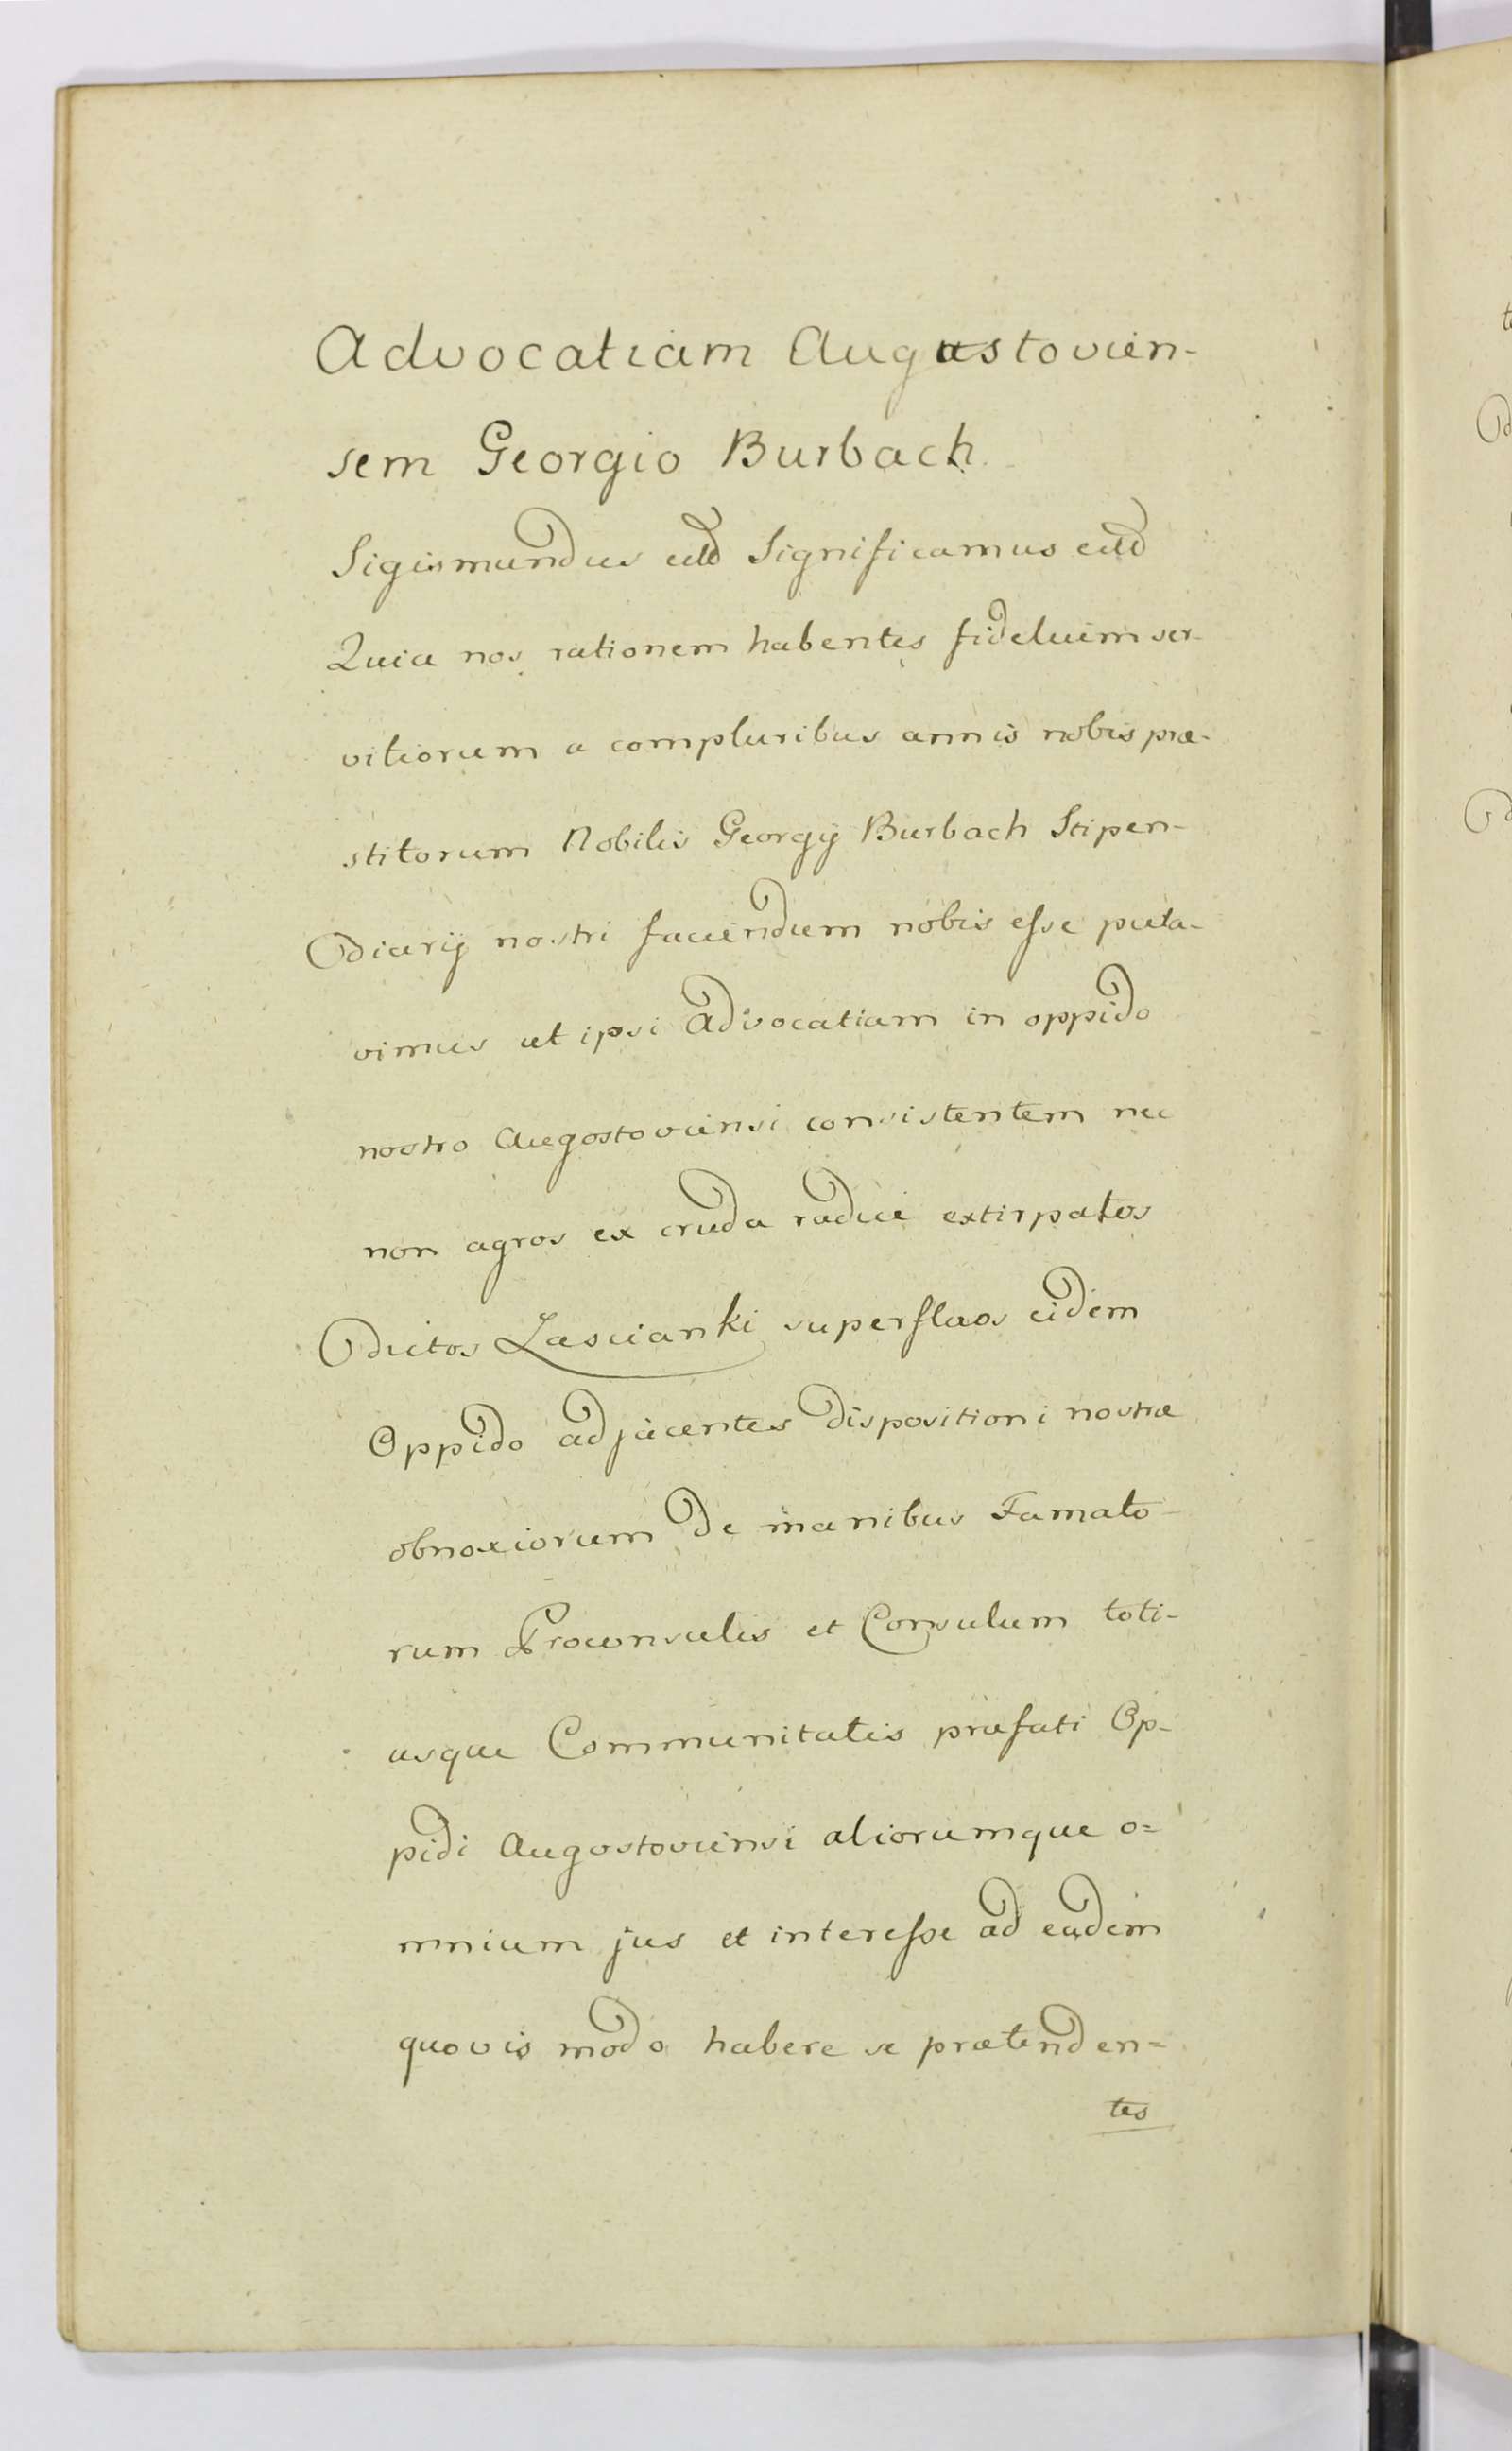 Advocatiam Augustovien-
sem Georgio Burbach
Sigismundus Significamus
Quia nos rationem habentes fidelium ser-
vitiorum a compluribus annis nobis præ-
stitorum Nobilis Georgÿ Burbach Stipen-
diarÿ nostri faciendum nobis esse puta-
vimus ut ipsi advocatiam in oppido
nostro Augostoviensi consistentem nec
non agros ex cruda radice extirpatos
dictos superfluos eidem
Oppido adjacentes dispositioni nostræ
obnoxiorum de manibus Famato-
rum Proconsulis et Consulum toti-
usque Communitatis præfati Op-
pidi Augostoviensi aliorumque o=
mnium jus et interesse ad eadem
quovis modo habere se prætenden=
tes